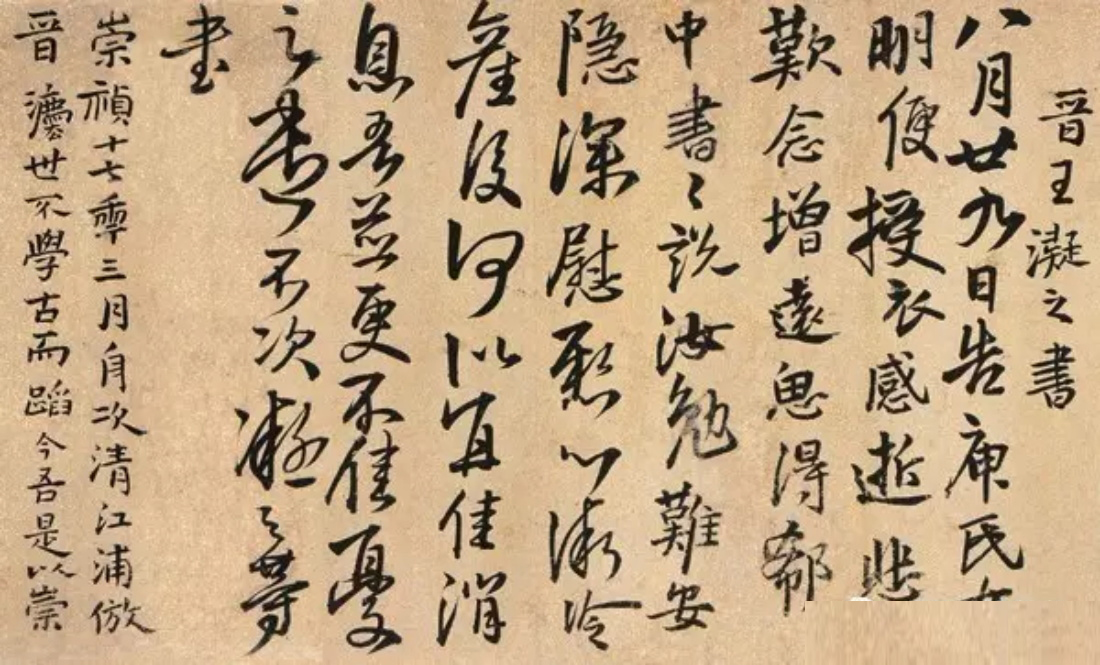 晋王凝之書
八月廿九日告庾氏女
明便授衣感逝悲
歎念增遠思得郗
中書〻説汝勉難安
隱深慰懸心微冷
產後何似宜佳消
息吾並更不佳憂
之遣不次凝之等
書
崇禎十七年三月舟次清江浦倣
晋灋世不學古而蹈今吾是以崇